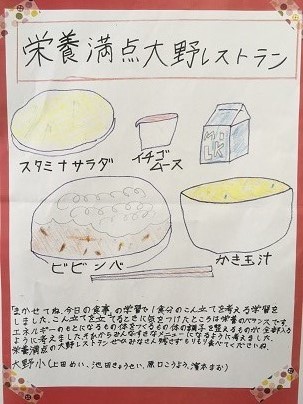 栄養満点大野レストラン
スタミナサラダ
イチゴ
ムース
MILK
ビビンバ
かき玉汁
「まかせてね、今日の食事」の学習で1食分のこん立てを考える学習を
しました。こん立てを立てるときに気をつけたところは栄養のバランスです。
エネルギーのもとになるもの体をつくるもの体の調子を整えるものが全部入る
ように考えました。それからみんながすきなメニューになるように考えました。
栄養満点の大野レストランぜひみなさん残さずもりもり食べてくださいね。
大野小(上田めい、池田きょうせい、原口こうよう、濱本まお)